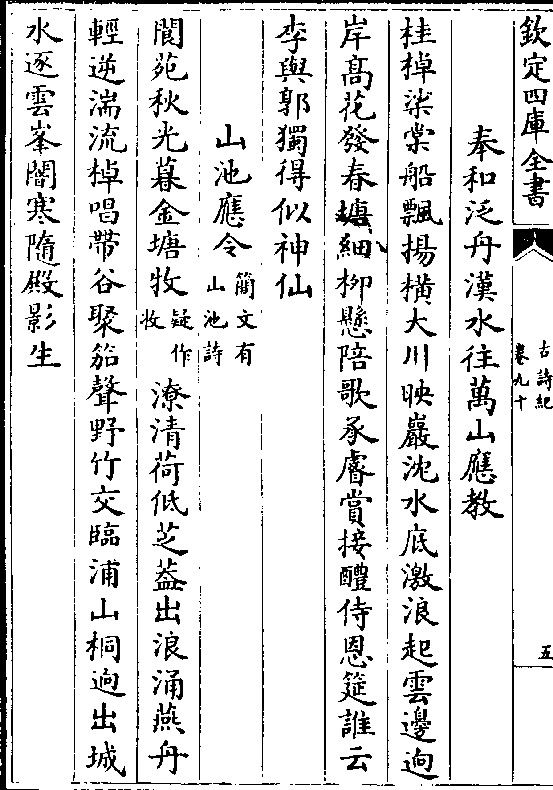 欽定四庫全書
古詩紀
卷九十
五
奉和泛舟漢水往萬山應教
桂棹柒棠船飄揚橫大川映巖沈水底激浪起雲邊迥
岸髙花發春塘細柳懸陪歌承睿賞接醴侍恩筵誰云
李與郭獨得似神仙
山池應令簡文有山池詩
閬苑秋光暮金塘牧疑作收潦清荷低芝葢出浪涌燕舟
輕逆湍流棹唱帶谷聚笳聲野竹交臨浦山桐迥出城
水逐雲峯闇寒隨殿影生